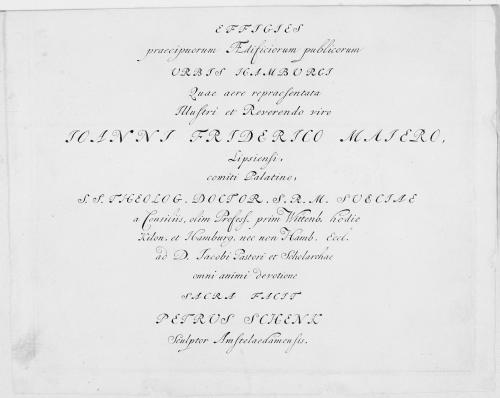 EFFIGIES
praecipuorum Ædificiorum publicorum
URBIS HAMBURGI
Quae aere repraesentata
Illustri et Reverendo viro
IOANNI FRIDERICO MAIERO,
Lipsiensi,
comiti Palatino,
S.S. THEOLOG. DOCTOR. S.R.M. SVECIAE
a Consiliis, olim Profess. prim Wittenb. hodie
Kilon. et Hamburg. nec non Hamb. Eccl.
ad D. Jacobi Pastori et Scholarchae
omni animi devotione
SACRA FACIT
PETRVS SCHENK
Sculptor Amstelaedamensis.